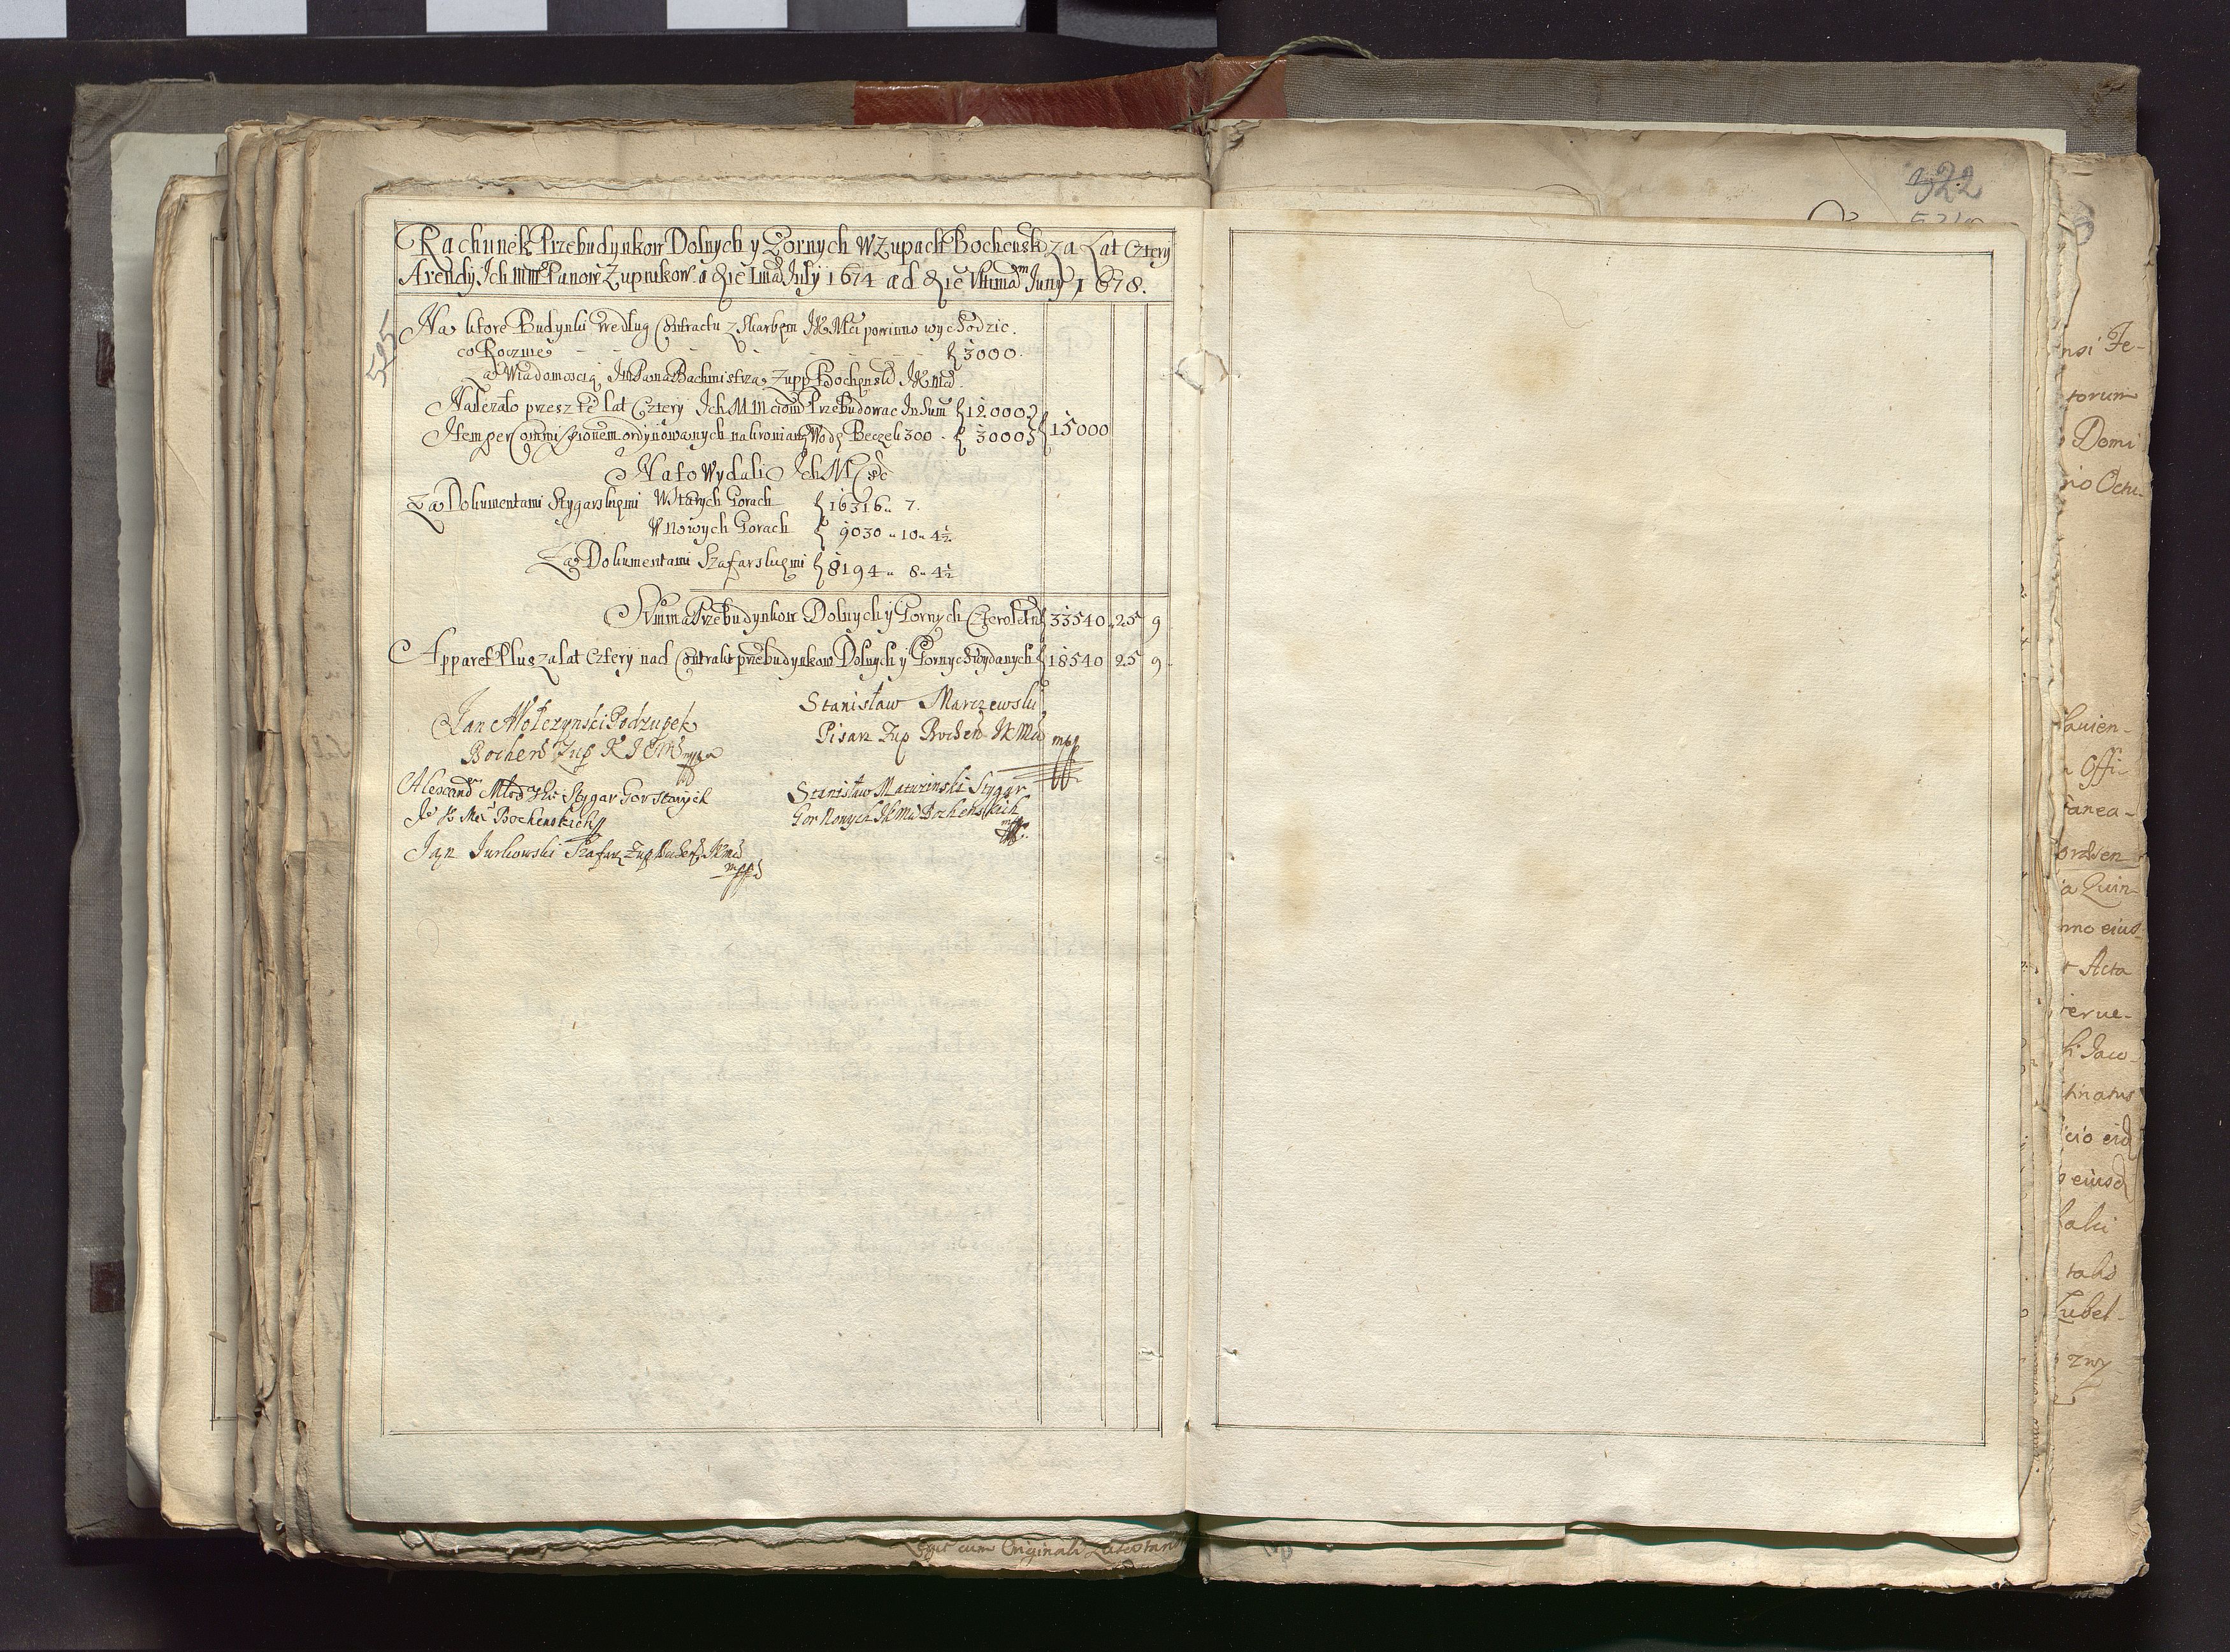 Rachunek Przebudynkow Dolnych y Gornych W Zupach Bochensk za Lat Cztery
Arendy Ich Mm Panow Zupnikow a die 1ma July 1674 ad die Vltimam Juny 1678.
525
Na ktore Budynki według Contractu z Skarbem JKMci powinno wychodzic
co Rocznie - - - - - - 3000.
za Wiadomoscią Jm Pana Bachmistrza Zupp Bochenskich JKMci
Należało przesz te lat Cztery Ich M Mciom Przebudowac In Sum 12000
Item per Commissionem ordynowanych na Wody Beczek 300 . 3000 15000
Na to Wydali Ich Mc
Za Dokumentami Stygarskiemi W Starych Gorach 16316 .. 7.
W Nowych Gorach 9030 .. 10 .. 4½
Za Dokumentami Szafarskiemi 8194 .. 8 .. 4½
Summa Przebudynkow Dolnych y Gornych Czteroletnich 33540 .. 25 9
Apparet Plus za lat Cztery nad Contrakt przebudynkow Dolnych y Gornych wydanych 18540 25 9
Jan Podzupek
Bochens Zup K J Mci mppa
Stanisław Marczewski
Pisarz Zup Bochen JKMci mpp
Alexand Stygar Gor Starych
J K Mci Bochenskich
Stanisław Maturinski Stygar
Gor Nowych JKMci Bochenskich
mpp
Jan Jurkowski Szafarz Zup Bochens JKMci
mpp
322
nsi Fe-
torum
Domi
rio Octu-
lauien-
Offi-
anea-
a Quin-
mo eius
Acta
erue-
hnatus
cio eid
eiusd
talis
Lubel-
zwy
Legit cum Originali